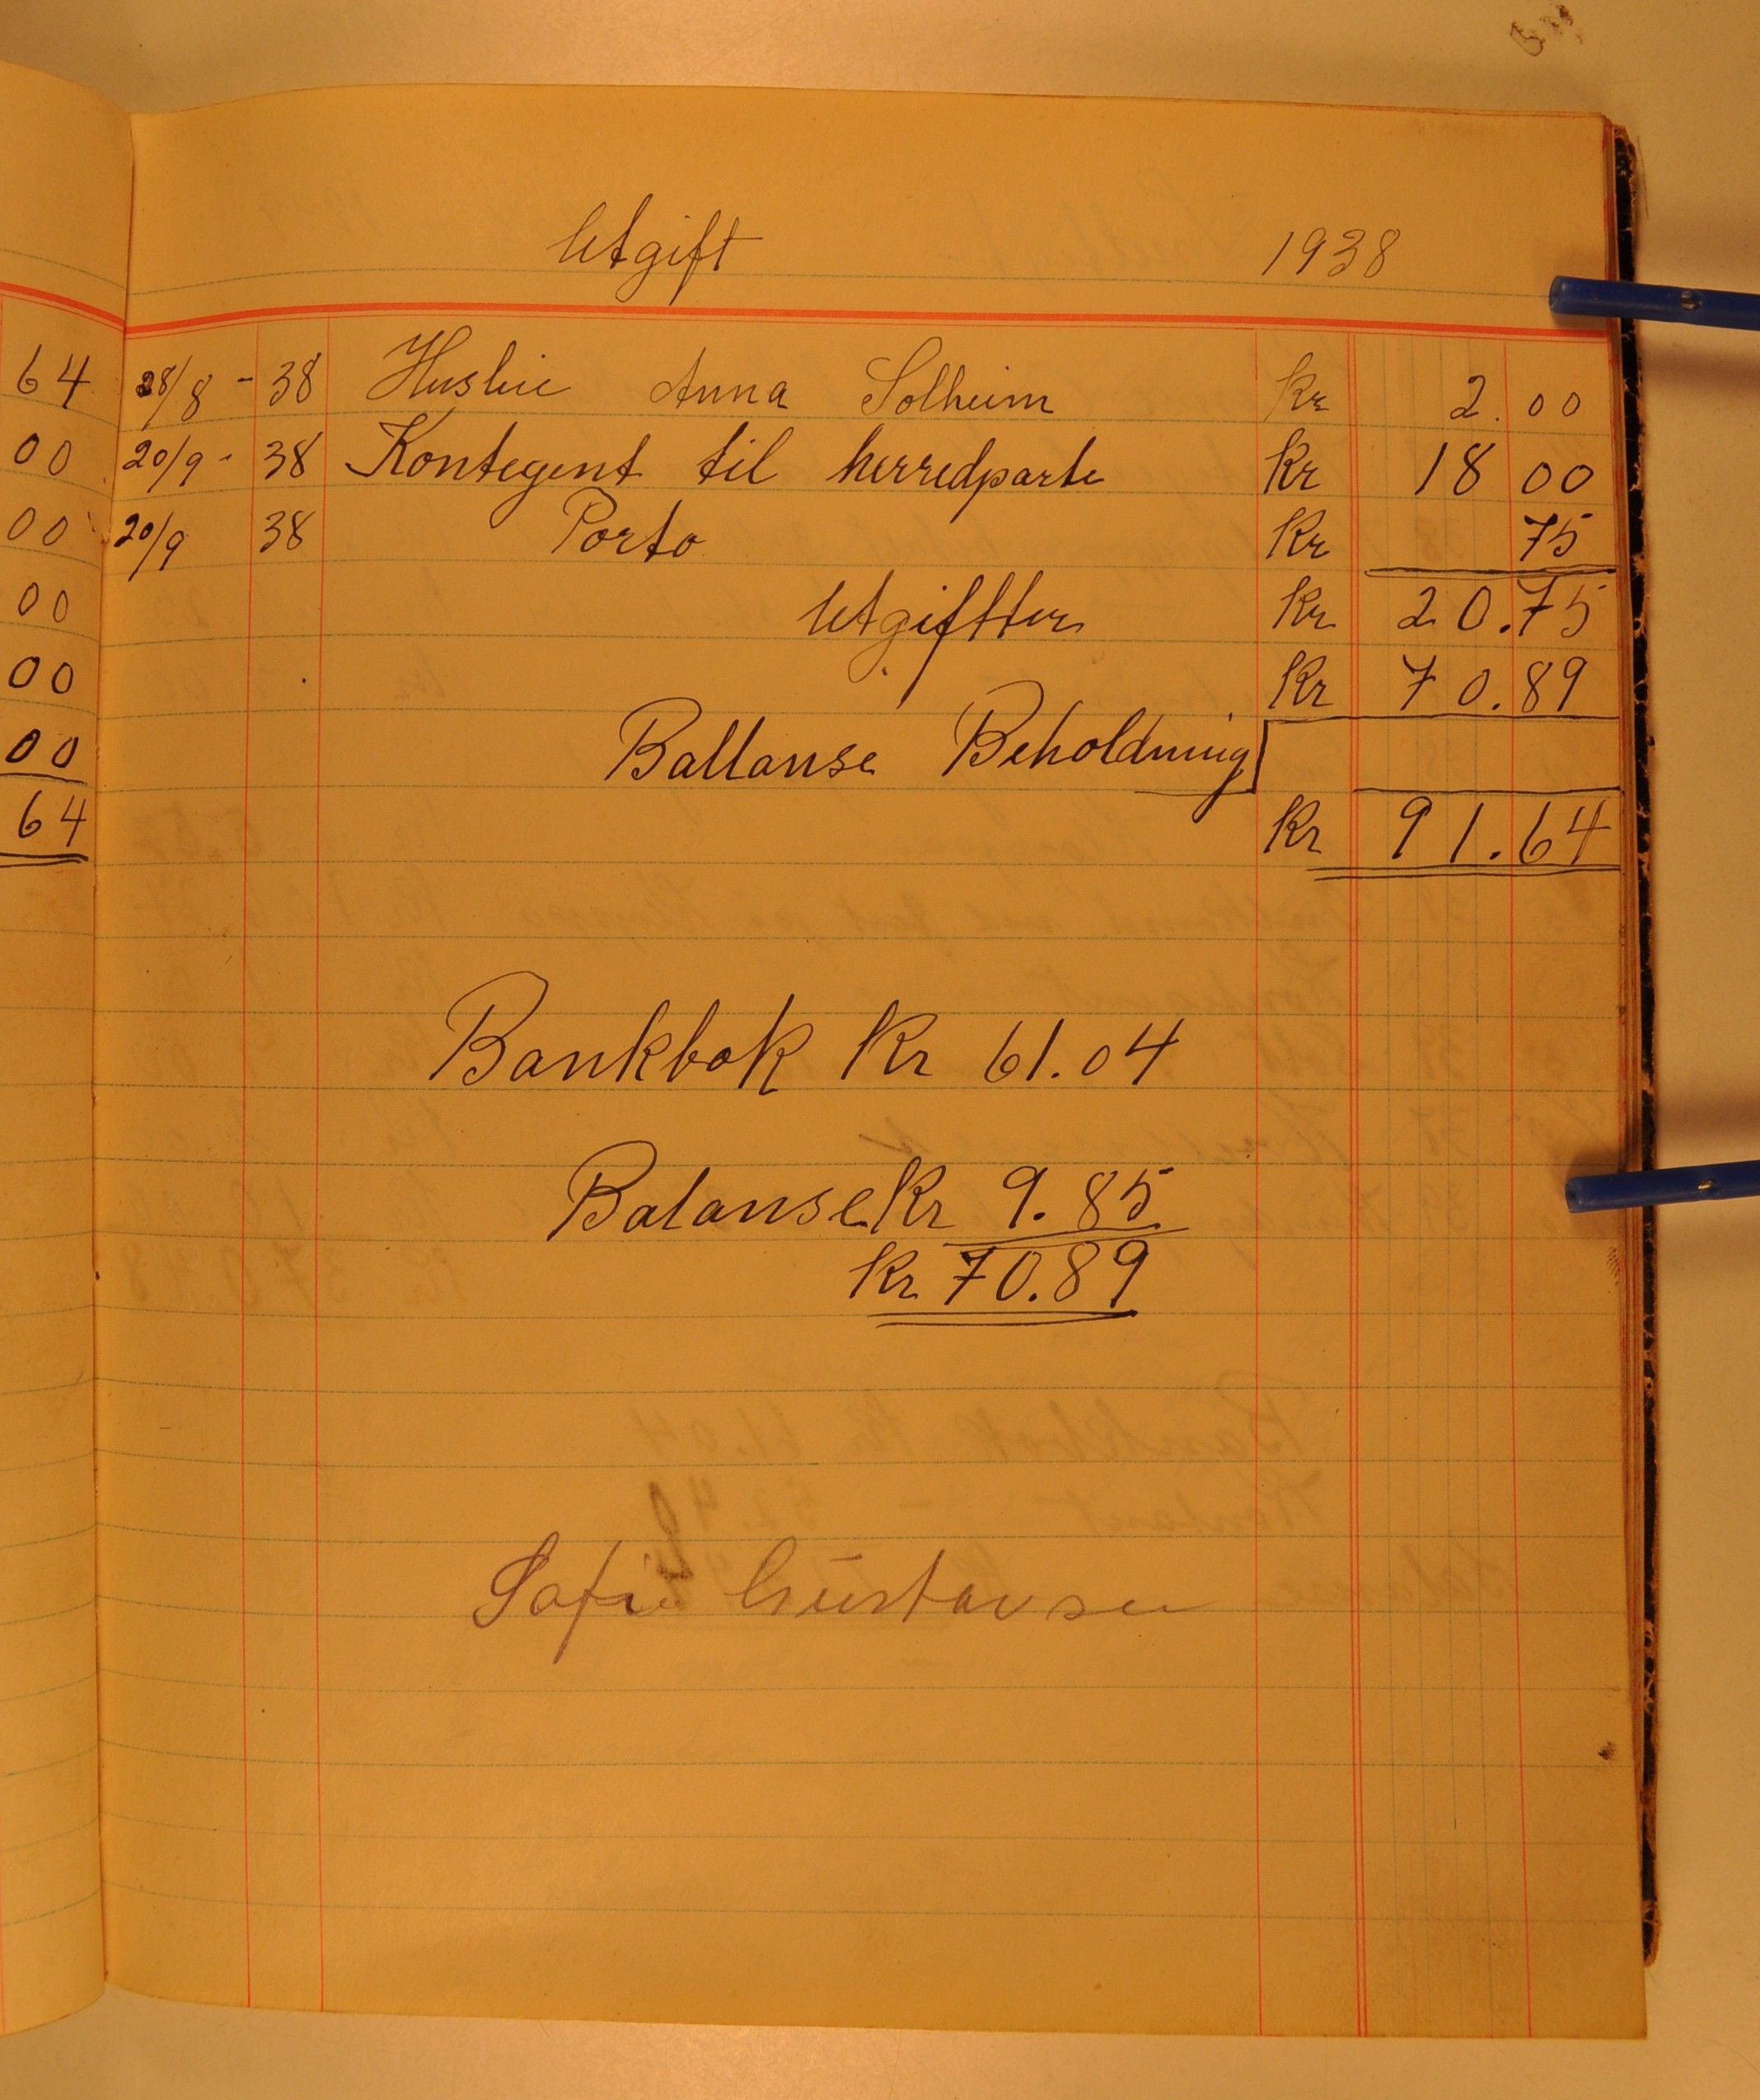 Utgift 1938
64
00
00
00
00
00
64
28/8 - 38 Husleie Anna Solheim Kr 2.00
20/9 - 38 Kontegent til herredparte Kr 18 00
20/9 38 Porto Kr 75
Utgiftter Kr 20.75
Kr 70.89
Ballanse Beholdning
Kr 91.64
Bankbok Kr 61.04
Balanse Kr 9.85
Kr 70.89
Sofie Gustavsen